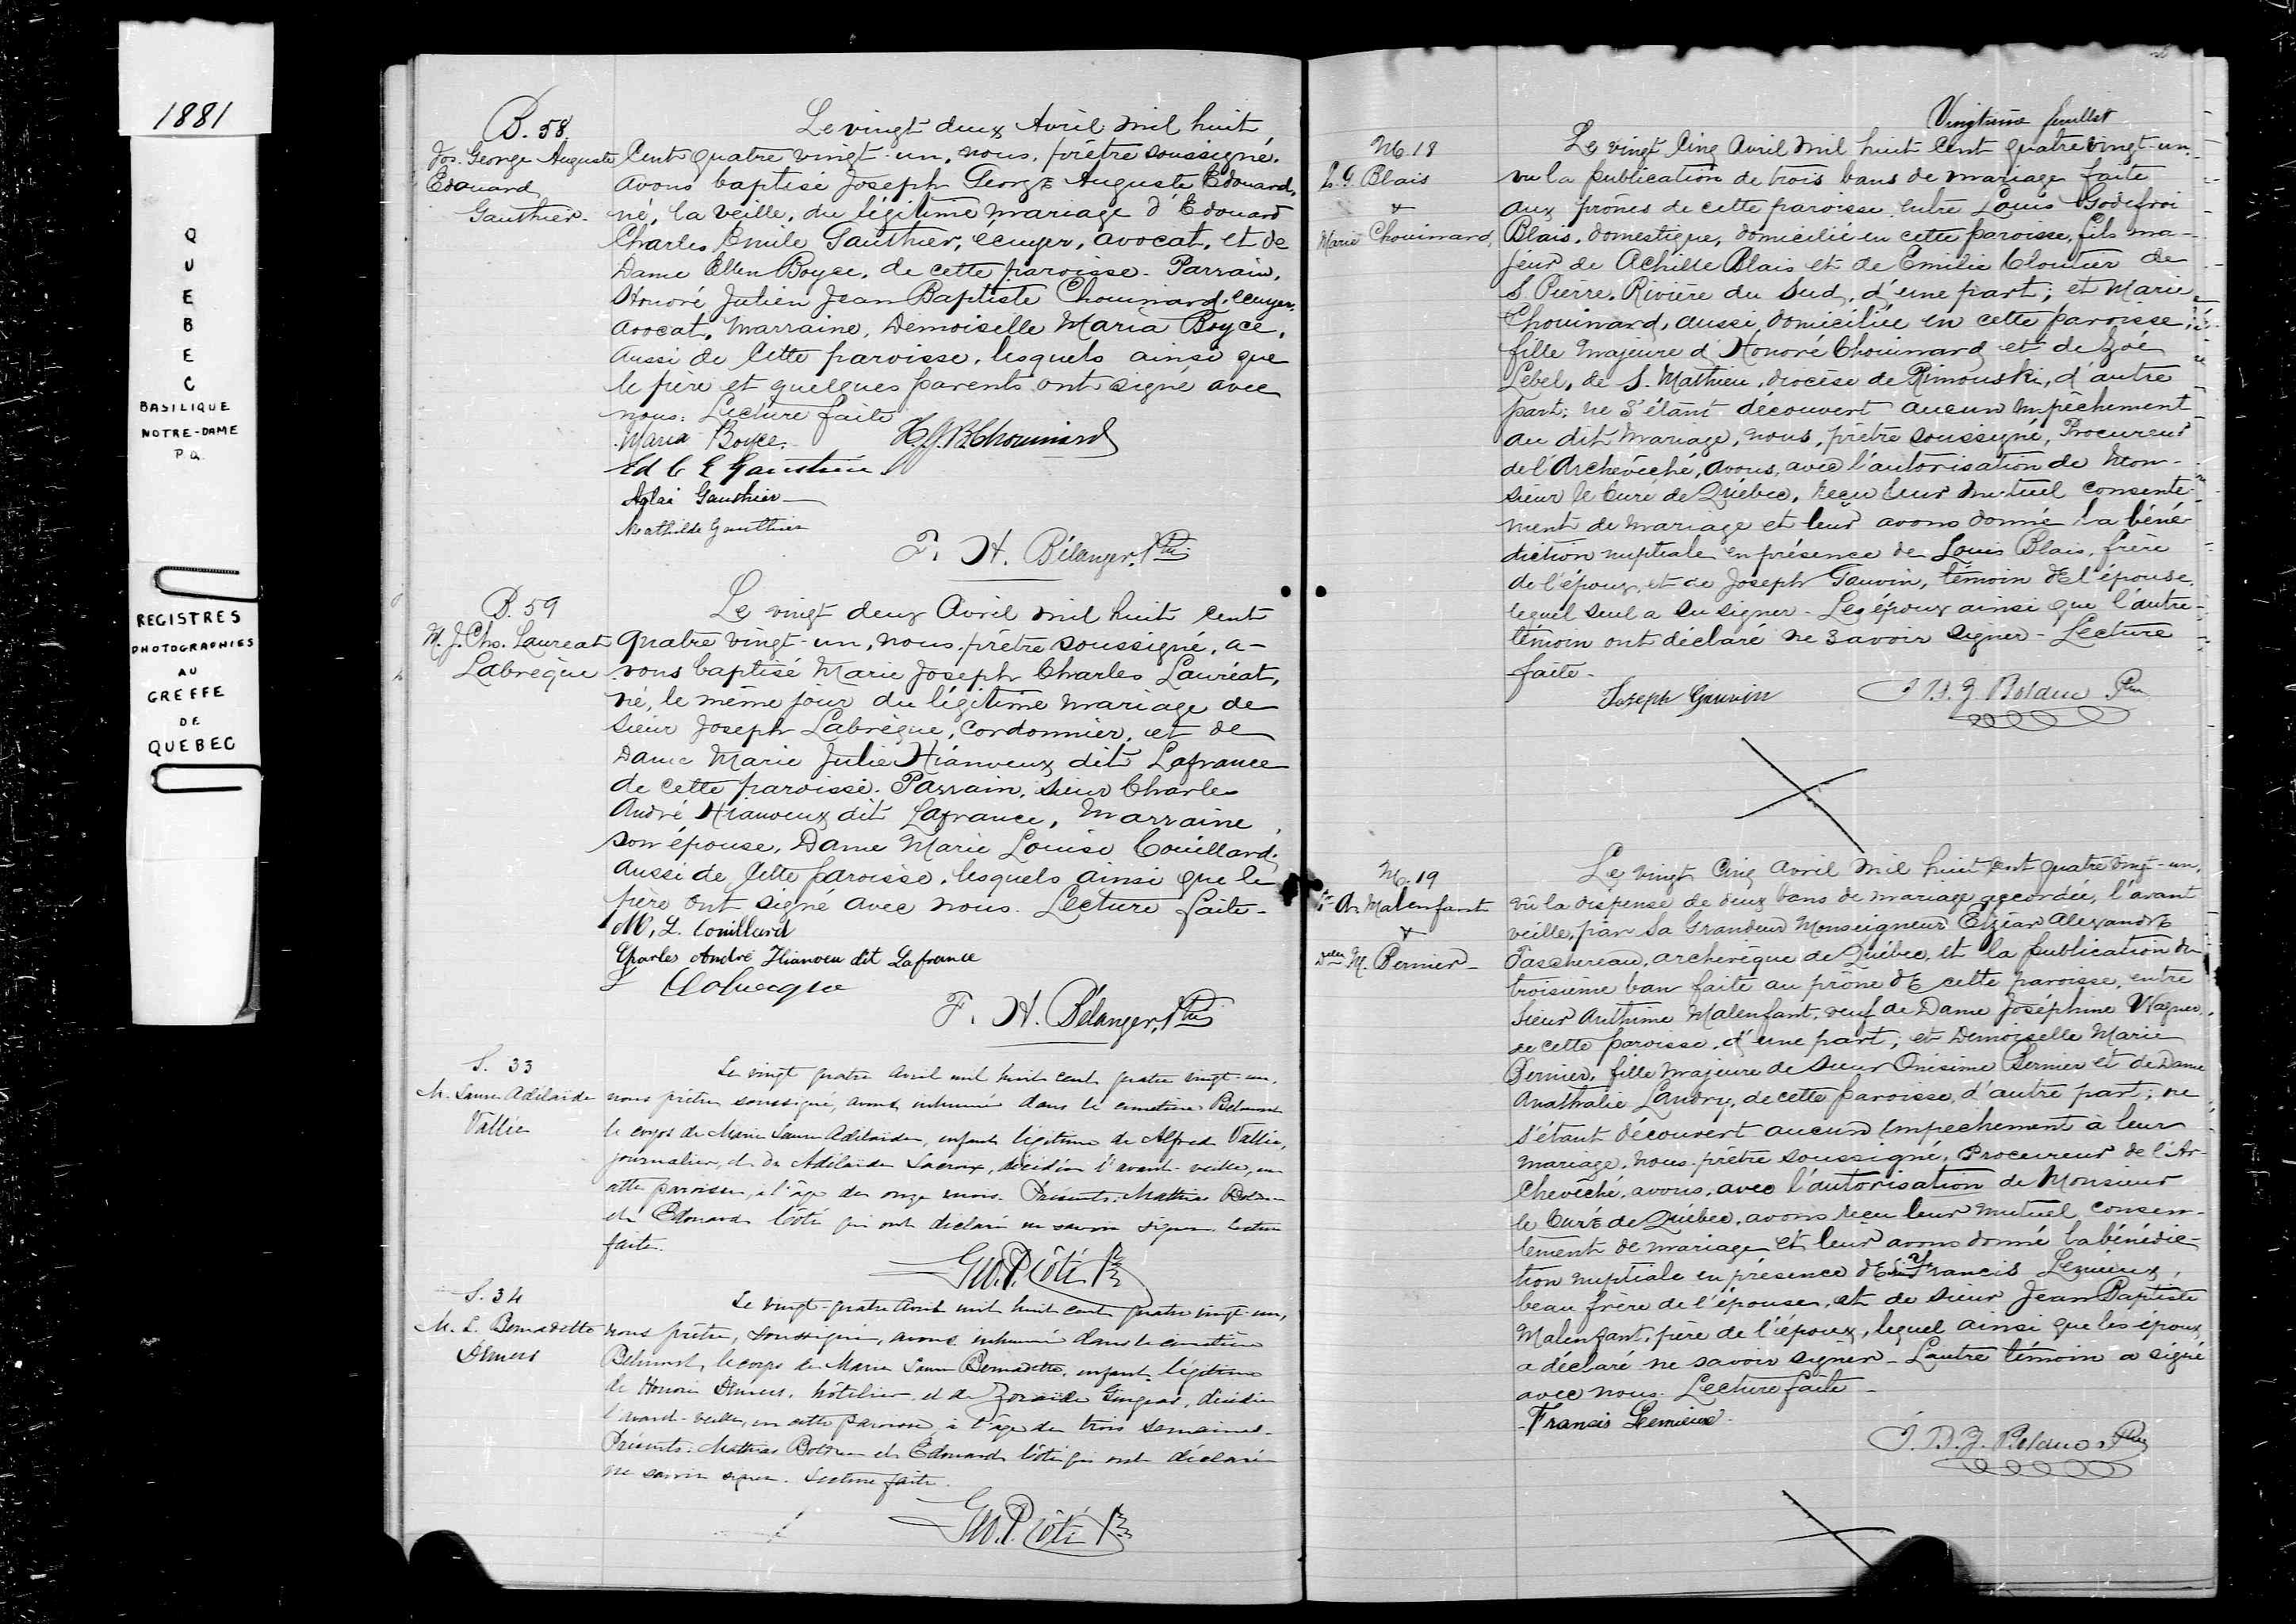 1881
QUEBEC
BASILIQUE
NOTRE-DAME
P.Q.
REGISTRES
PHOTOGRAPHIES
AU
GREFFE
DE
QUEBEC
B. 58.
Jos. George Auguste
Edouard
Gauthier.
Le vingt deux Avril mil huit
Cent quatre vingt-un, nous, prêtre soussigné,
avons baptisé Joseph George Auguste Edouard,
né, la veille, du légitime mariage d'Edouard
Charles Emile Gauthier, écuyer, avocat, et de
Dame Ellen Boyce, de cette paroisse. Parrain,
Honoré Julien Jean Baptiste Chouinard, écuyer,
avocat, Marraine, Demoiselle Maria Boyce,
aussi de cette paroisse, lesquels ainsi que
le père et quelques parents ont signé avec
nous. Lecture faite
Maria Boyce. H.J.J.B. Chouinard
Ed C E Gauthier
Aglaé Gauthier
Mathilde Gauthier
F. H. Bélanger, Ptre
B. 59
M. J. Chs. Laureat
Labrèque
Le vingt deux Avril mil huit cent
quatre vingt-un, nous, prêtre soussigné, a-
vons baptisé Marie Joseph Charles Lauréat,
né, le même jour du légitime mariage de
sieur Joseph Labrèque, cordonnier, et de
Dame Marie Julie Hianveux dit Lafrance
de cette paroisse. Parrain, sieur Charles
André Hianveux dit Lafrance, Marraine,
son épouse, Dame Marie Louise Couillard,
aussi de cette paroisse, lesquels ainsi que le
père ont signé avec nous. Lecture faite-
M. L. Couillard
Charles André Hianveu dit Lafrance
J Labrecque
F. H. Bélanger, Ptre
S. 33
M. Laure Adélaïde
Vallée
Le vingt quatre avril mil huit cent quatre vingt-un,
nous prêtre soussigné, avons inhumé dans le cimetière Belmont
le corps de Marie Laure Adélaïde, enfant légitime de Alfred Vallée,
journalier, et de Adélaïde Lacroix, décédée l'avant-veille, en
cette paroisse, à l'âge de onze mois. Présents: Mathias
et Edouard Côté qui ont déclaré ne savoir signer. Lecture
faite.
Geo. P. Côté Ptre
S. 34
M. L. Bernadette
Demers
Le vingt-quatre Avril mil huit cent quatre vingt-un,
nous prêtre, soussigné, avons inhumé dans le cimetière
Belmont, le corps de Marie Laure Bernadette, enfant légitime
de Honoré Demers, hôtelier et de Zoraïde Gingras, décédée
l'avant-veille, en cette paroisse, à l'âge de trois semaines.
Présents: Mathias et Edouard Côté qui ont déclaré
ne savoir signer. Lecture faite.
Geo. P. Côté Ptre
Vingtième feuillet
M. 18
L. G. Blais
&
Marie Chouinard,
Le vingt cinq Avril mil huit cent quatre vingt-un,
vu la publication de trois bans de mariage faite
aux prônes de cette paroisse entre Louis Godefroi
Blais, domestique, domicilié en cette paroisse, fils ma-
jeur de Achille Blais et de Emilie Cloutier de
S. Pierre, Rivière du Sud, d'une part; et Marie
Chouinard, aussi domiciliée en cette paroisse,
fille majeure d'Honoré Chouinard et de Zoé
Lebel, de S. Mathieu, diocèse de Rimouski, d'autre
part; ne s'étant découvert aucun empêchement
au dit mariage, nous, prêtre soussigné, Procureur
de l'Archevêché, avons, avec l'autorisation de Mon-
sieur le Curé de Québec, reçu leur mutuel consente-
ment de mariage et leur avons donné la béné-
diction nuptiale en présence de Louis Blais, frère
de l'époux, et de Joseph Gauvin, témoin de l'épouse,
lequel seul a su signer. Les époux ainsi que l'autre
témoin ont déclaré ne savoir signer - Lecture
faite.
Joseph Gauvin J. B. Z. Bolduc Ptre
M. 19
Sr An Malenfant
&
Delle M. Bernier
Le vingt cinq avril mil huit cent quatre vingt-un,
vû la dispense de deux bans de mariage accordée, l'avant
veille, par Sa Grandeur Monseigneur Elzéar Alexandre
Taschereau, archevêque de Québec, et la publication du
troisième ban faite au prône de cette paroisse, entre
Sieur Anthime Malenfant, veuf de Dame Joséphine Wagner,
de cette paroisse, d'une part; et Demoiselle Marie
Bernier, fille majeure de sieur Onésime Bernier et de Dame
Anathalie Landry, de cette paroisse, d'autre part; ne
s'étant découvert aucun empêchement à leur
mariage, nous prêtre soussigné, Procureur de l'Ar-
chevêché, avons, avec l'autorisation de Monsieur
le Curé de Québec, avons reçu leur mutuel consen-
tement de mariage et leur avons donné la bénédic-
tion nuptiale en présence de Sr Francis Lemieux,
beau frère de l'épouse, et de sieur Jean Baptiste
Malenfant, père de l'époux, lequel ainsi que les époux
a déclaré ne savoir signer - L'autre témoin a signé
avec nous. Lecture faite -
Francis Lemieux.
J. B. Z. Bolduc Ptre